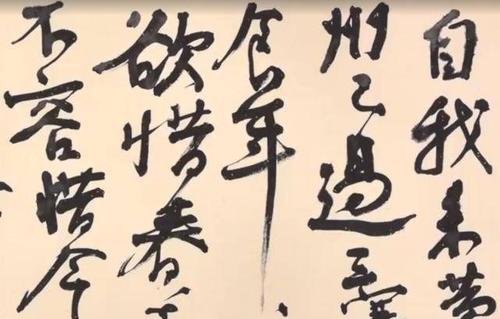 自我来黄
州已過三寒
食年
欲惜春
不容惜今